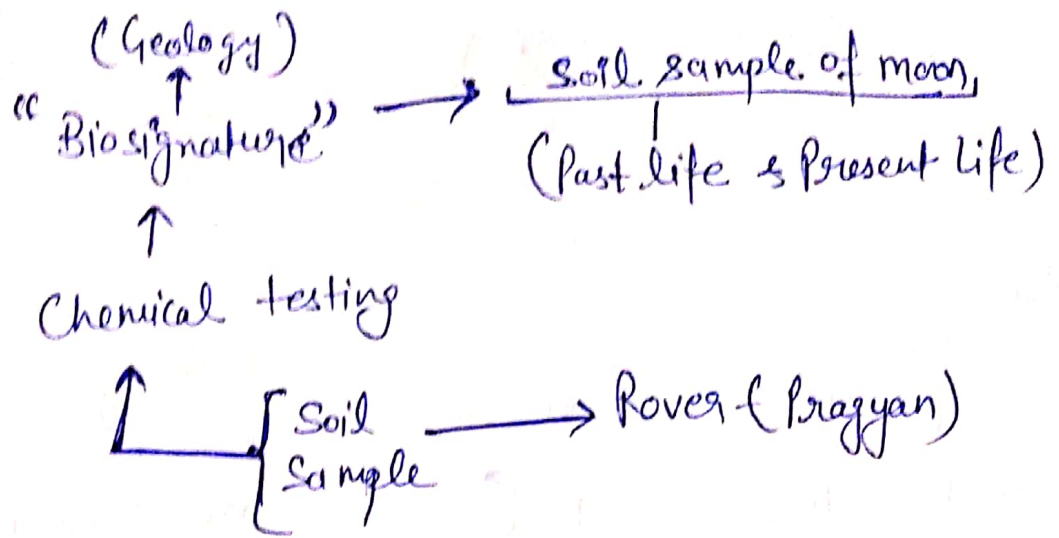 (Geology)
"Biosignature" → soil sample of moon,
(Past life & Present Life)
Chemical testing
Soil → Rover (Pragyan)
Sample